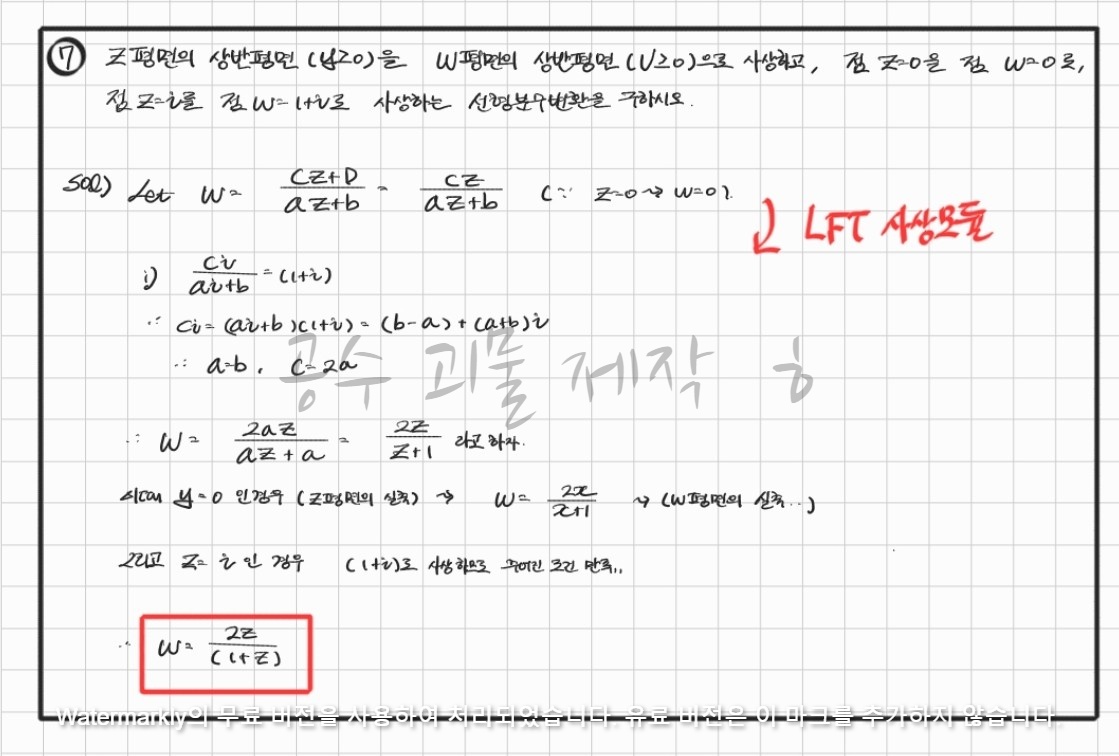 ⑦ Z평면의 상반평면(y≥0)을 W평면의 상반평면(V≥0)으로 사상하고, 점 Z=0을 점 W=0로,
점 Z=i를 점 W=1+i로 사상하는 선형분수변환을 구하시오.
sol) Let W= (CZ+D)/(aZ+b) = CZ/(aZ+b) (∵ Z=0→W=0).
↓ LFT 사상모듈
i) Ci/(ai+b) = (1+i)
∴ Ci=(ai+b)(1+i)=(b-a)+(a+b)i
∴ a=b, C=2a
공수 괴물 제작 ㅎ
∴ W= 2aZ/(aZ+a) = 2Z/(Z+1) 라고 하자.
y=0 인경우 (Z평면의 실축) → W= 2x/(x+1) → (W평면의 실축..)
그리고 Z=i 인 경우 (1+i)로 사상하므로 주어진 조건 만족..
∴ W= 2Z/(1+Z)
Watermarkly의 무료 버전을 사용하여 처리되었습니다. 유료 버전은 이 마크를 추가하지 않습니다.